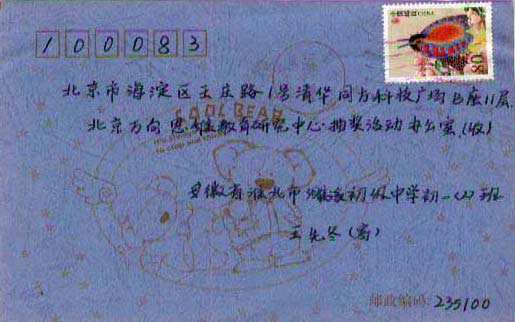 100083
中国邮政 CHINA
80
北京市海淀区王庄路1号清华同方科技广场B座11层
COOL BEAR
北京万向思维教育研究中心抽奖活动办公室(收)
安徽省淮北市 初级中学初一(2)班
王先冬(寄)
邮政编码: 235100